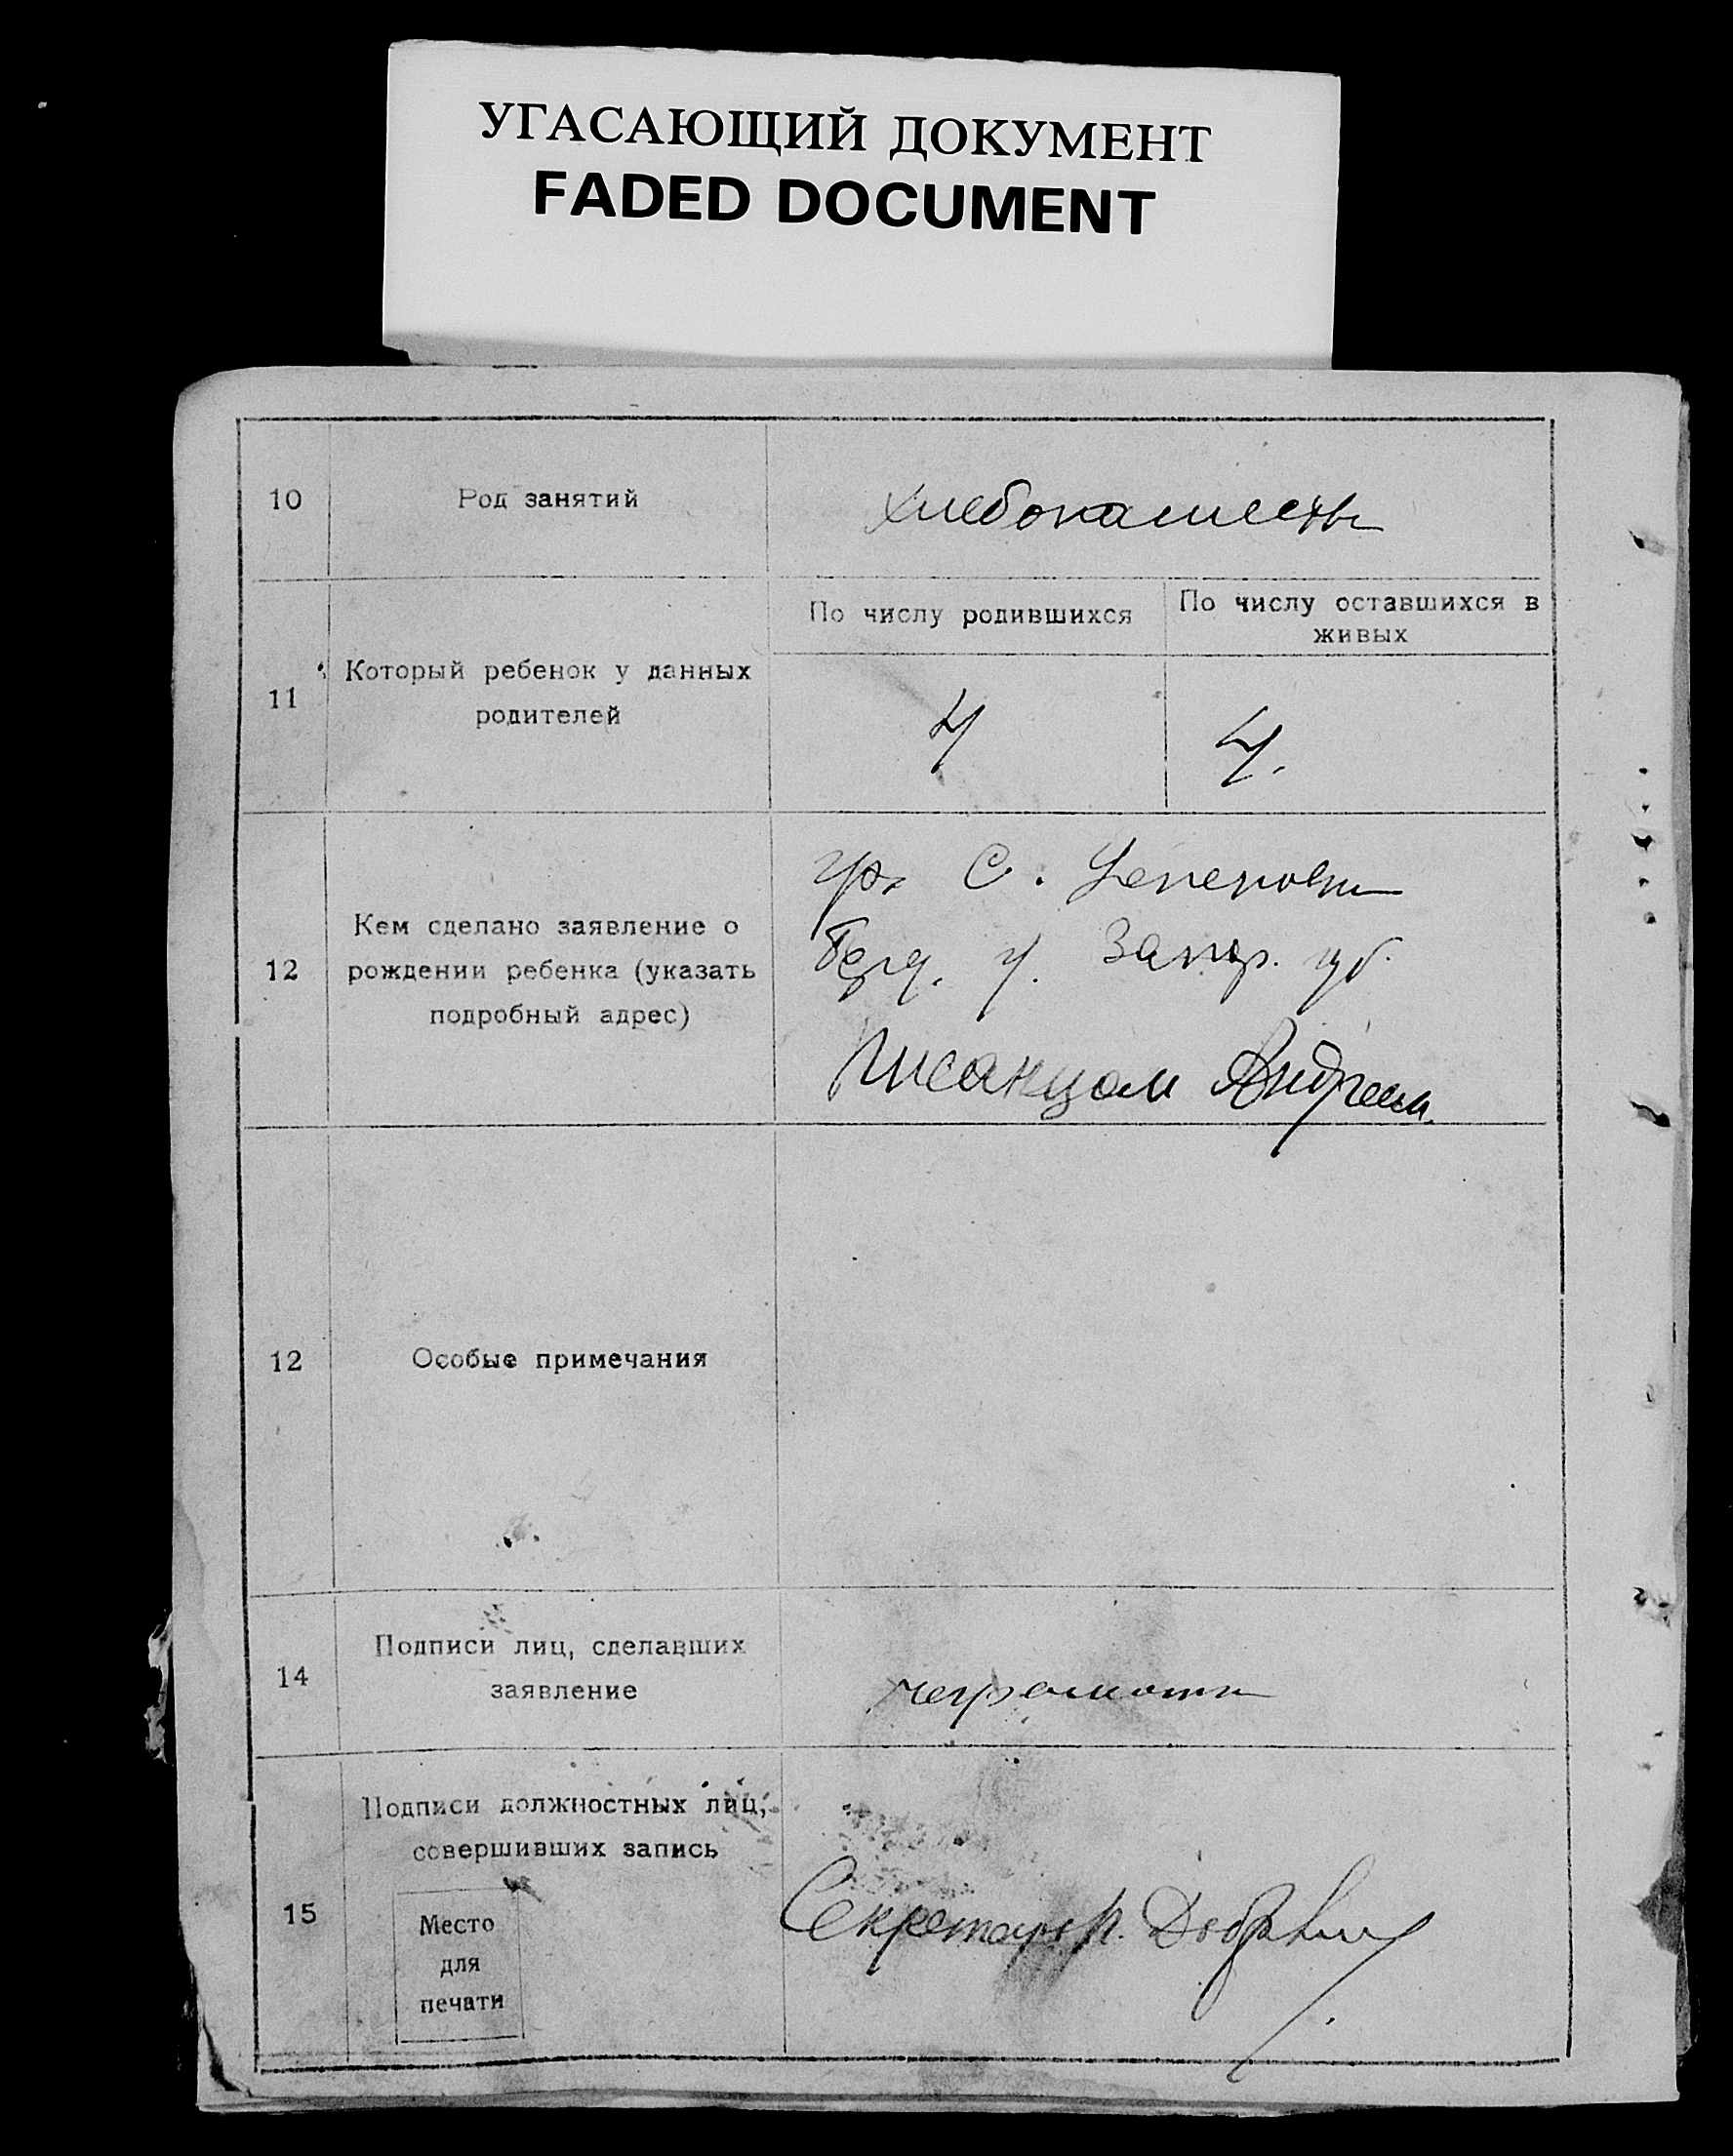 УГАСАЮЩИЙ ДОКУМЕНТ
FADED DOCUMENT
10
Род занятий
11
Который ребенок у данных
родителей
По числу родившихся
По числу оставшихся в
живых
4
4.
12
Кем сделано заявление о
рождении ребенка (указать
подробный адрес)
гр. С.
Берд. у. Запор. губ.
Писанцом Андреем.
12
Особые примечания
14
Подписи лиц, сделавших
заявление
15
Подписи должностных лиц,
совершивших запись
Место
для
печати
Секретарь